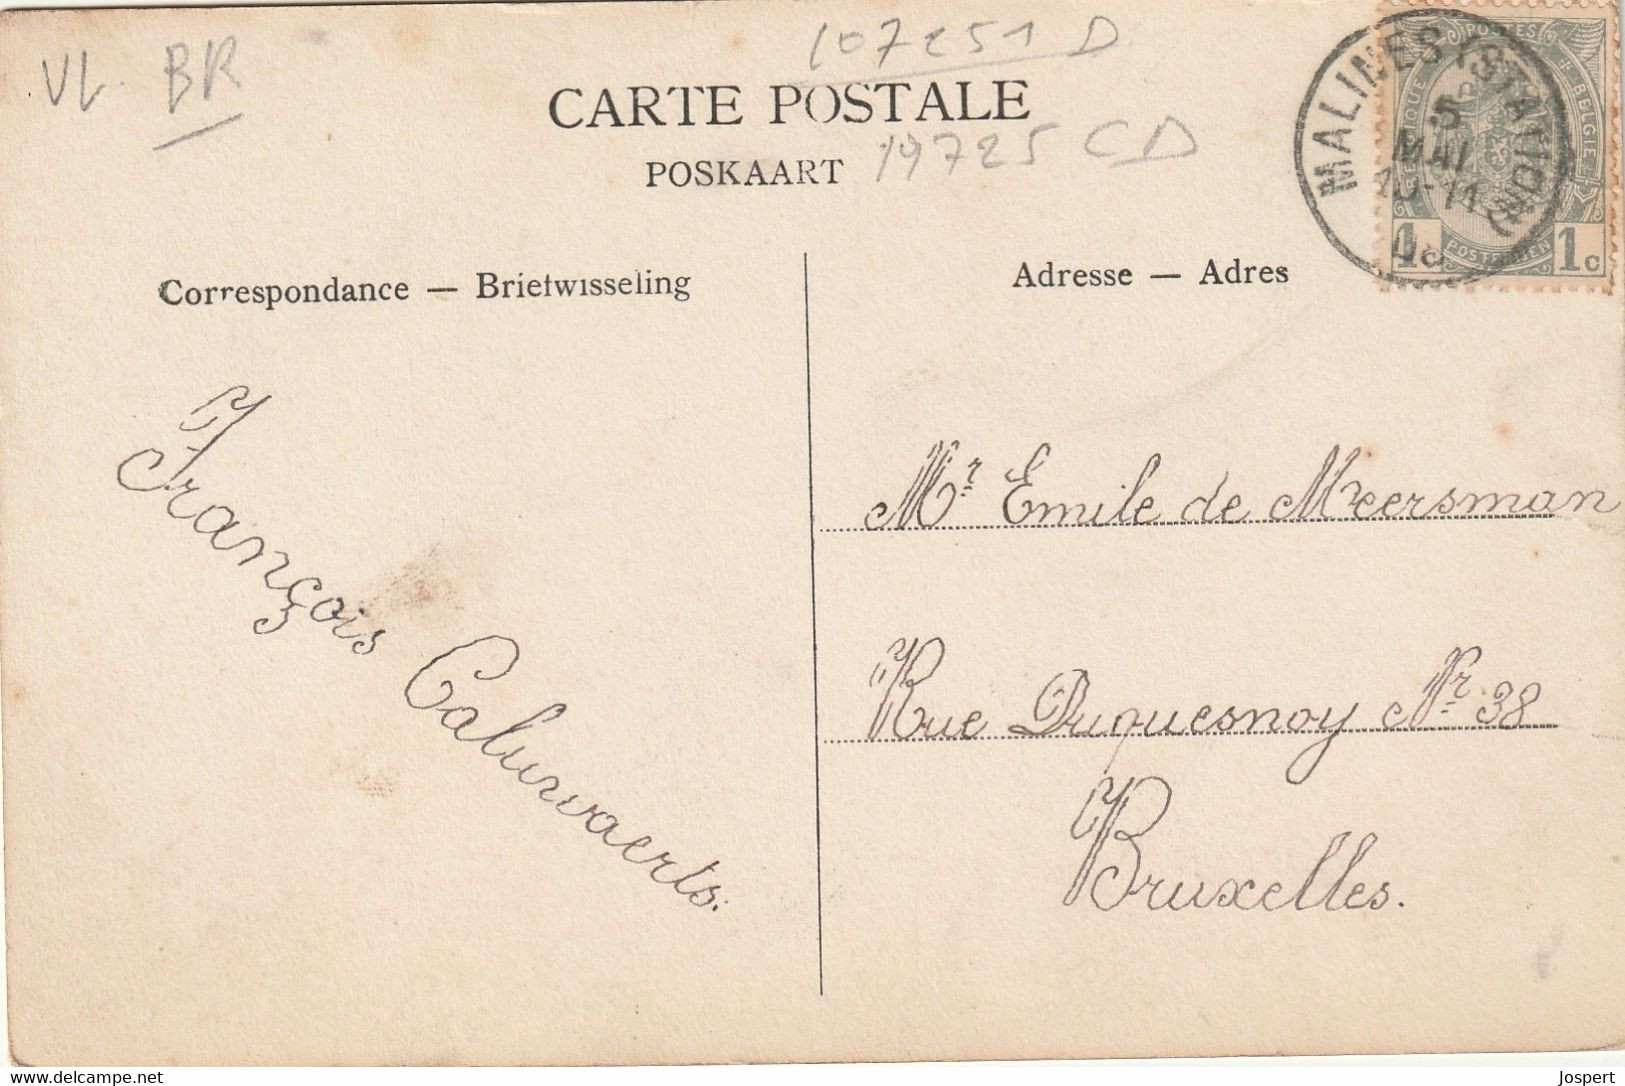 VL BR
107251 D
CARTE POSTALE
POSKAART
19725 CD
MALINES (STATION)
5
MAI
10-11
08
POSTES
BELGIQUE BELGIE
1 1c
POSTERIJEN
Correspondance — Briefwisseling
Adresse — Adres
François Caluwaerts.
Mr Emile de Meersman
Rue Duquesnoy Nr 38
Bruxelles.
www.delcampe.net
Jospert